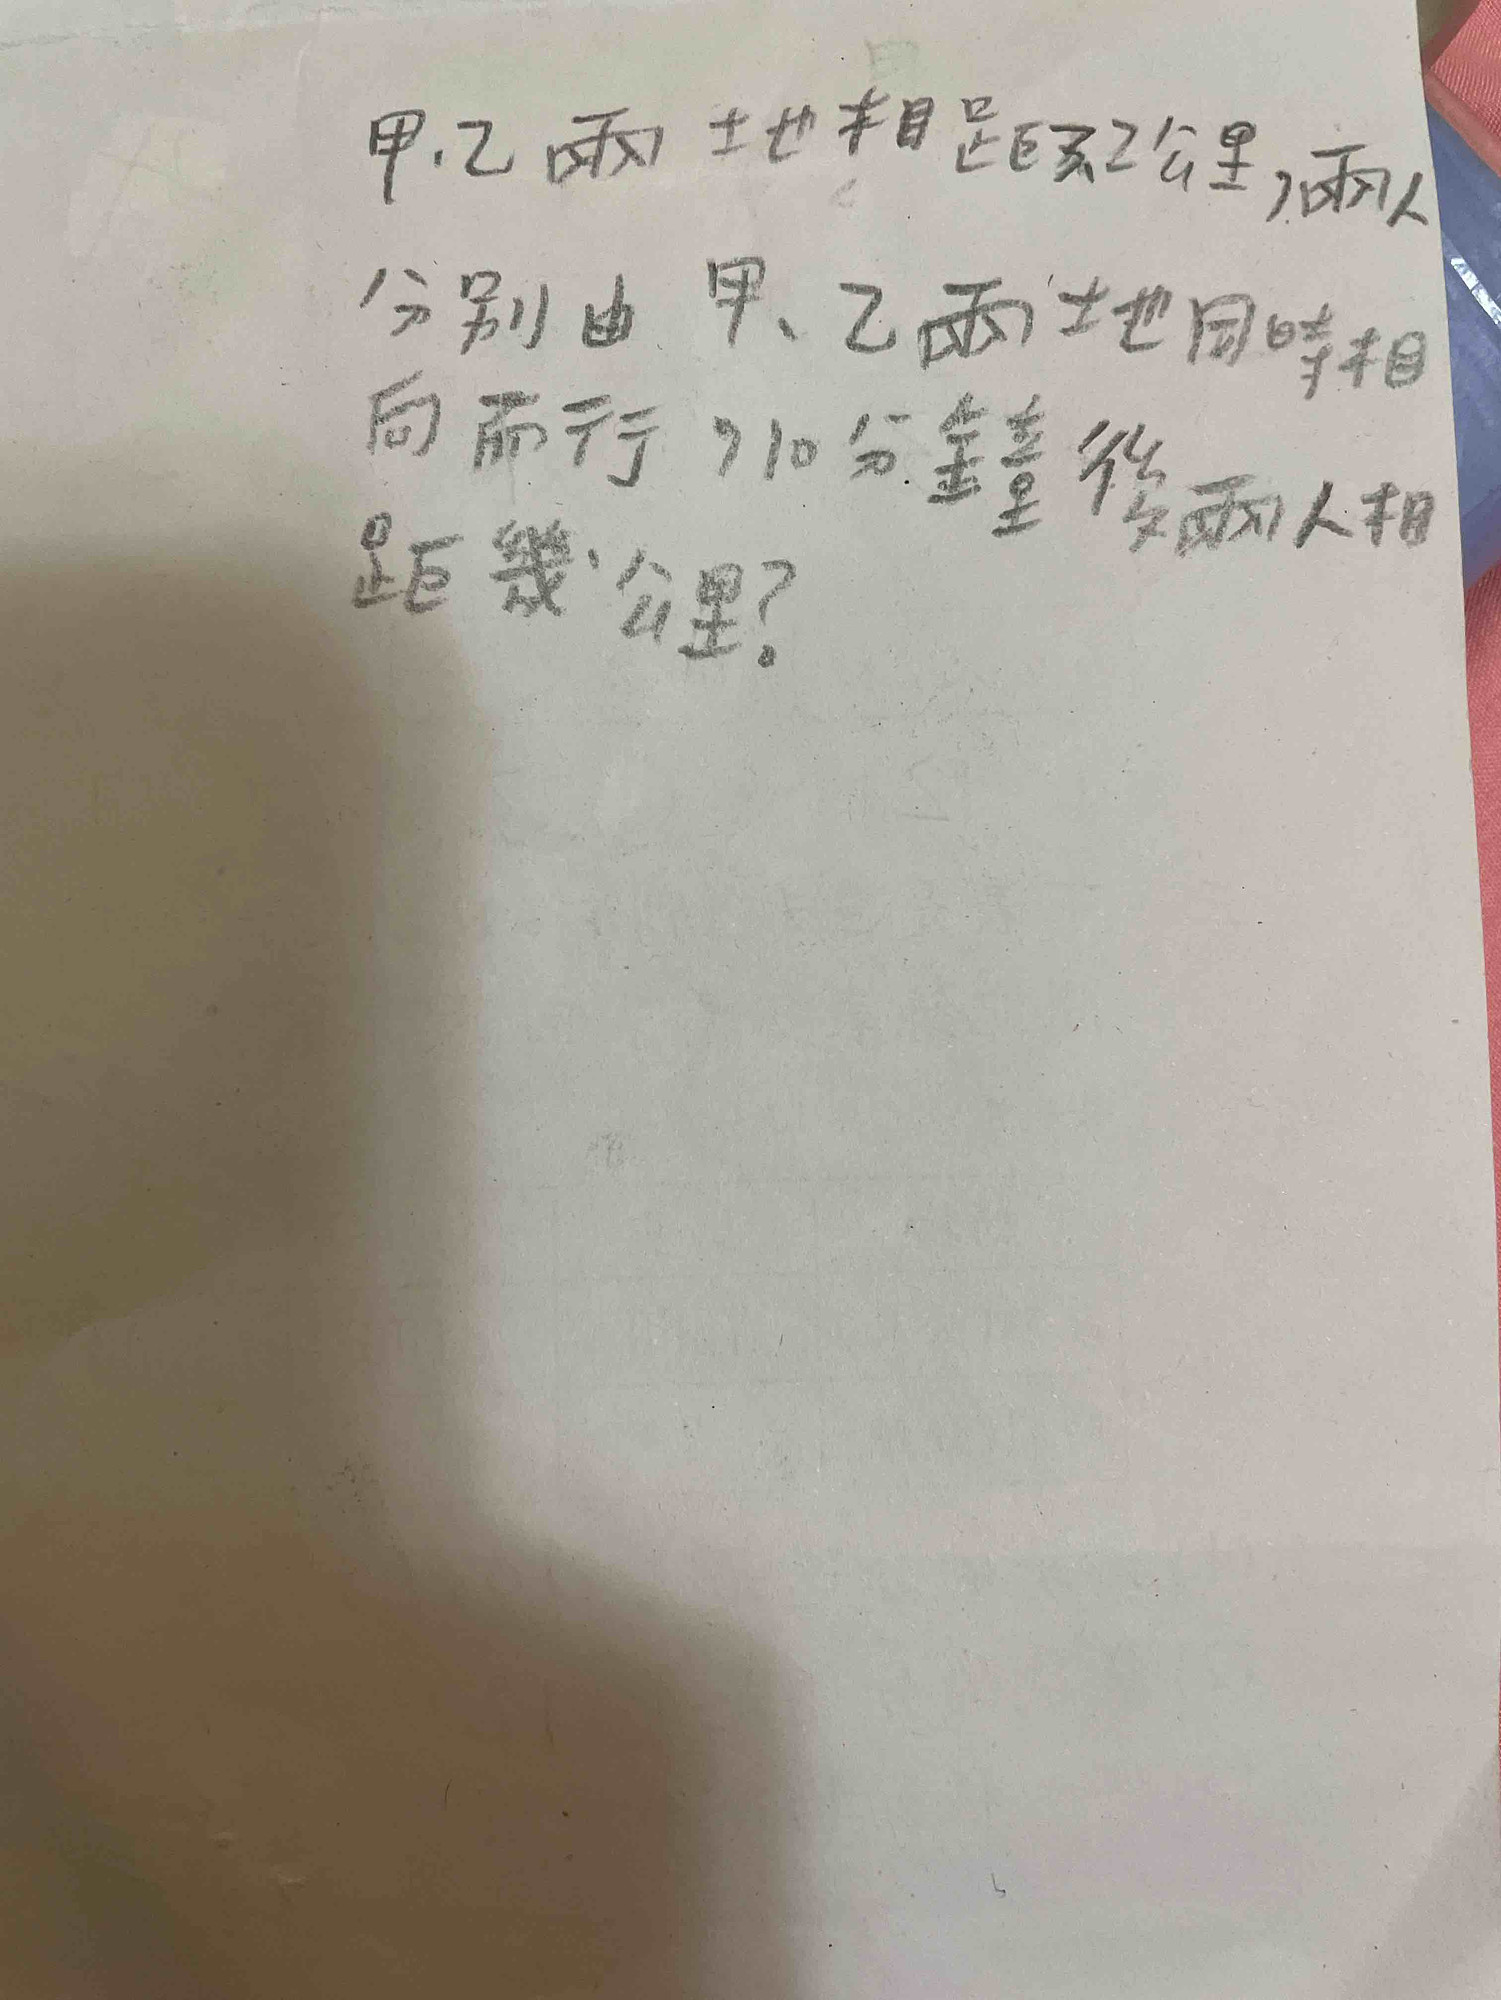 甲、乙兩地相距2公里,兩人
分別由甲、乙兩地同時相
向而行,10分鐘後兩人相
距幾公里?